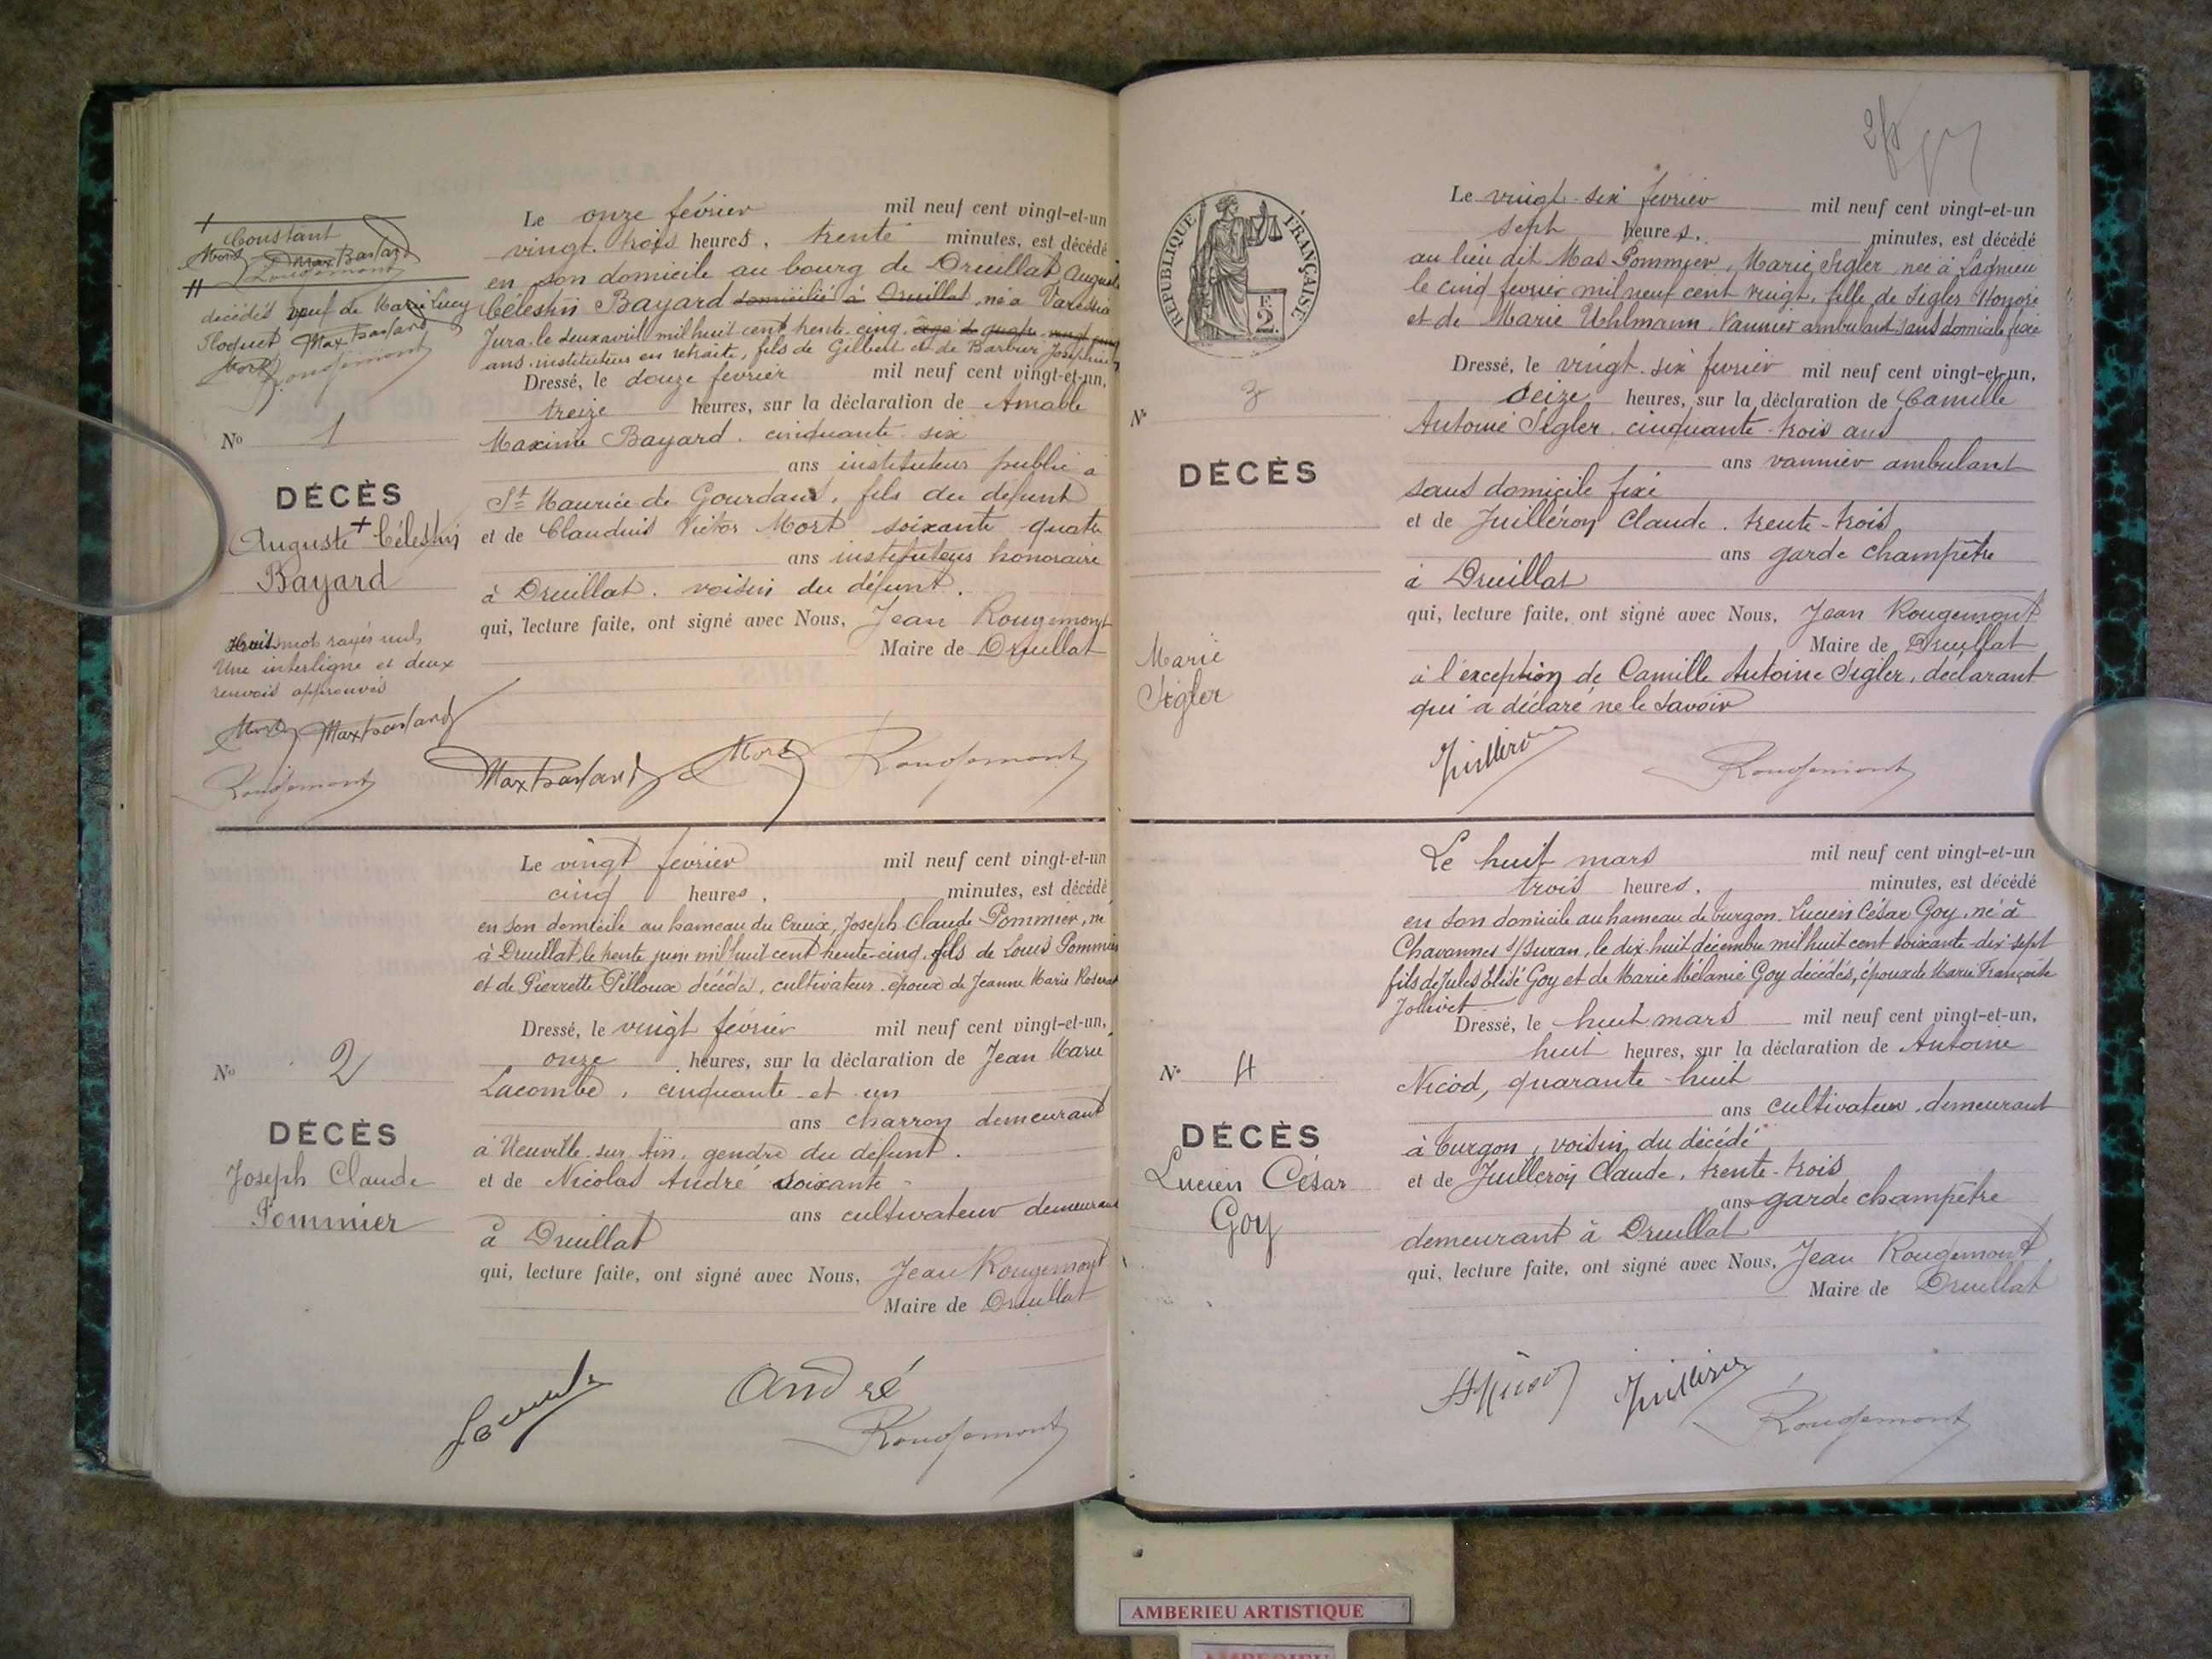 +
Constant
Mort Max Bayard
Rougemont
H
décédés veuf de Marie Lucy
Floquet Max Bayard
Mort Rougemont
No 1
DÉCÈS
Auguste + Célestin
Bayard
Huit mots rayés nuls
Une interligne et deux
renvois approuvés
Mort Max Bayard
Rougemont
Le onze février mil neuf cent vingt-et-un
vingt-trois heures, trente minutes, est décédé
en son domicile au bourg de Druillat Auguste
Célestin Bayard domicilié à Druillat, né à Varessia
Jura, le deux avril mil huit cent trente-cinq, âgé de quatre vingt cinq
ans, instituteur en retraite, fils de Gilbert et de Barbier Joséphine
Dressé, le douze février mil neuf cent vingt-et-un,
treize heures, sur la déclaration de Amable
Maxime Bayard, cinquante-six
ans instituteur public à
St Maurice de Gourdans, fils du défunt
et de Claudius Victor Mort soixante quatre
ans instituteur honoraire
à Druillat, voisin du défunt.
qui, lecture faite, ont signé avec Nous, Jean Rougemont
Maire de Druillat
Max Bayard Mort Rougemont
No 2
DÉCÈS
Joseph Claude
Pommier
Le vingt février mil neuf cent vingt-et-un
cinq heures, minutes, est décédé
en son domicile au hameau du Creux, Joseph Claude Pommier, né
à Druillat, le trente juin mil huit cent trente-cinq, fils de Louis Pommier
et de Pierrette Pilloux décédés, cultivateur, époux de Jeanne Marie
Dressé, le vingt février mil neuf cent vingt-et-un,
onze heures, sur la déclaration de Jean Marie
Lacombe, cinquante et un
ans charron demeurant
à Neuville-sur-Ain, gendre du défunt.
et de Nicolas André soixante
ans cultivateur demeurant
à Druillat
qui, lecture faite, ont signé avec Nous, Jean Rougemont
Maire de Druillat
Lacombe André
Rougemont
2/5
RÉPUBLIQUE FRANÇAISE
F.
2
No 3
DÉCÈS
Marie
Sigler
Le vingt-six février mil neuf cent vingt-et-un
sept heures, minutes, est décédé
au lieu dit Mas Pommier, Marie Sigler née à Lagnieu
le cinq février mil neuf cent vingt, fille de Sigler Honoré
et de Marie Uhlmann, Vannier ambulant sans domicile fixe
Dressé, le vingt-six février mil neuf cent vingt-et-un,
seize heures, sur la déclaration de Camille
Antoine Sigler, cinquante-trois ans
ans vannier ambulant
sans domicile fixe
et de Juilléron Claude, trente-trois
ans garde champêtre
à Druillat
qui, lecture faite, ont signé avec Nous, Jean Rougemont
Maire de Druillat
à l'exception de Camille Antoine Sigler, déclarant
qui a déclaré ne le savoir
Juilleron Rougemont
No 4
DÉCÈS
Lucien César
Goy
Le huit mars mil neuf cent vingt-et-un
trois heures, minutes, est décédé
en son domicile au hameau de Turgon, Lucien César Goy, né à
Chavannes s/Suran, le dix-huit décembre mil huit cent soixante-dix-sept
fils de Jules Elisé Goy et de Marie Mélanie Goy décédés, époux de Marie Françoise
Jolivet
Dressé, le huit mars mil neuf cent vingt-et-un,
huit heures, sur la déclaration de Antoine
Nicod, quarante-huit
ans cultivateur, demeurant
à Turgon, voisin du décédé
et de Juilleron Claude, trente-trois
ans garde champêtre
demeurant à Druillat
qui, lecture faite, ont signé avec Nous, Jean Rougemont
Maire de Druillat
A Nicod Juilleron
Rougemont
AMBERIEU ARTISTIQUE
AMBERIEU